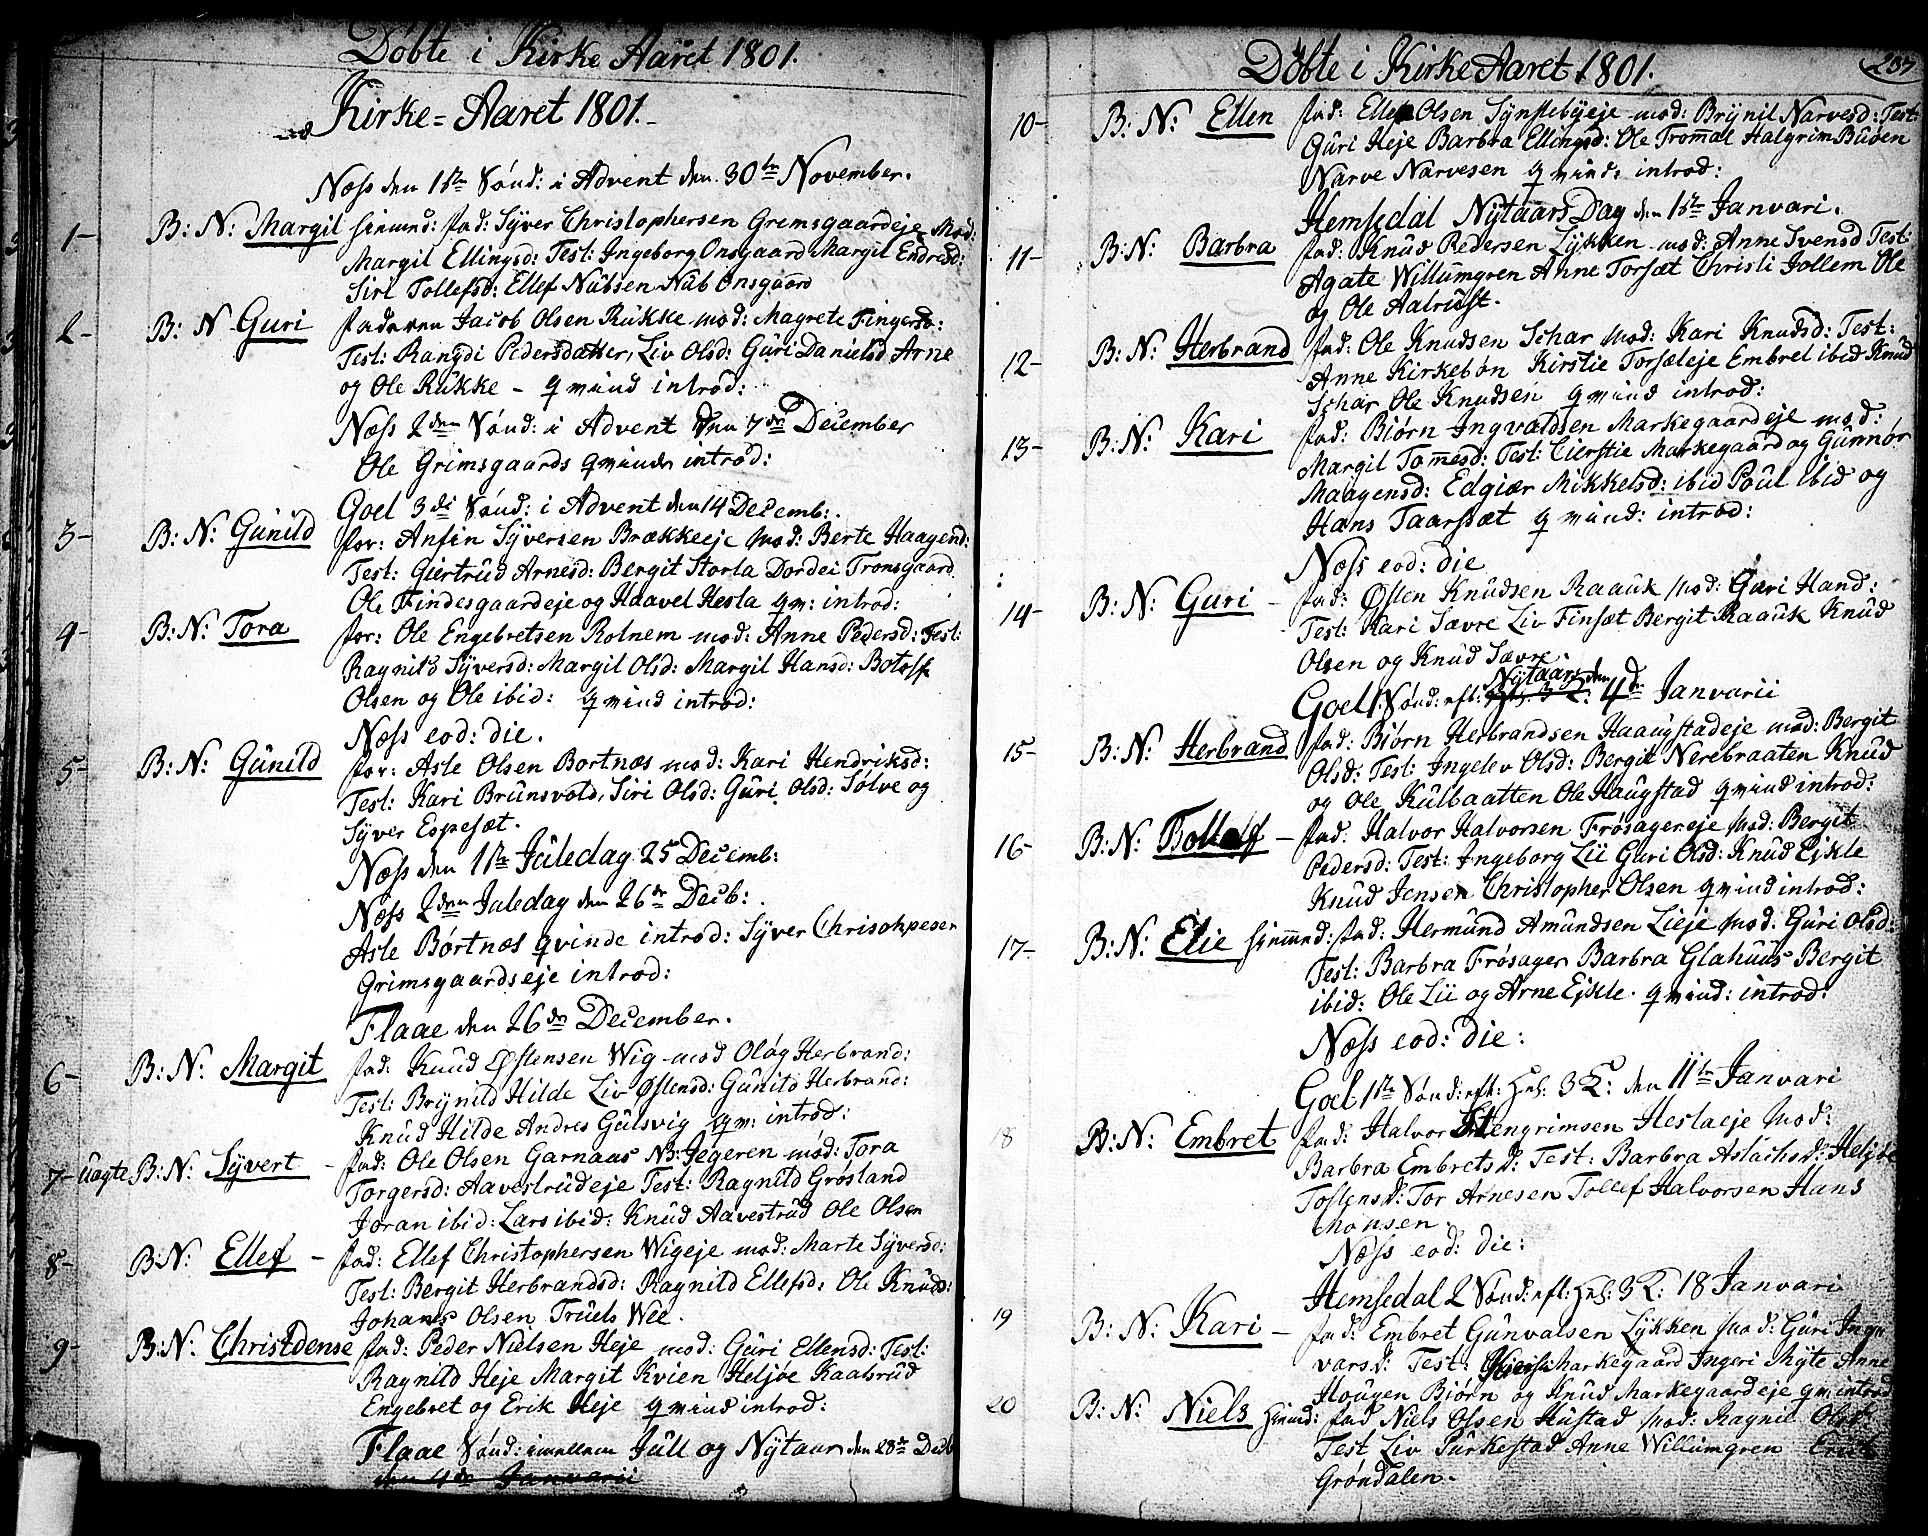 Döbte i Kirke Aaret 1801.
Kirke=Aaret 1801.
Næss den 1ste Sönd: i Advent den 30te November.
1- B: N: Margit hiemd: fad: Syver Christophersen Grimsgaardeje Mod:
Margit Ellingsd: Test: Ingeborg Onsgaard Margit Endresd:
Siri Tollefsd: Ellef Nubsen Nub Onsgaard
2- B: N Guri faderen Jacob Olsen Rukke mod: Magrete Fingersd:
Test: Rangdi Pedersdatter, Liv Olsd: Guri Danielsd Arne
og Ole Rukke - qvind introd:
Næss 2den Sönd: i Advent den 7de December
Ole Grimsgaards qvinde introd:
Goel 3di Sönd: i Advent den 14 Decemb:
3- B: N: Gunild for: Anfin Syversen Brækkeeje Mod: Berte Haagend:
Test: Giertrud Arnesd: Bergit Storla Dordei Tronsgaard
Ole Findesgaardeje og Haavel Hesla qv: introd:
4- B: N: Tora for: Ole Engebretsen Rolnem mod: Anne Pedersd: Test:
Ragnild Syversd: Margit Olsd: Margit Hansd: Botolf
Olsen og Ole ibid: qvind introd:
Næss eod: die.
5- B: N: Gunild for: Asle Olsen Bortnæs mod: Kari Hendriksd:
Test: Kari Brunsvold, Siri Olsd: Guri Olsd: Sölve og
Syver Espesæt.
Næss den 1ste Juledag 25 Decemb:
Næss 2den Juledag den 26de Decb:
Asle Börtnæs qvinde introd: Syver Chrisohpesen
Grimsgaardseje introd:
Flaae den 26de December.
6- B: N: Margit fad: Knud Østensen Wig mod Olag Herbrand:
Test: Brynild Hilde Liv Østensd: Gunild Herbrand:
Knud Hilde Andres Gulsvig qv: introd:
7- uægte B: N: Syvert - fad: Ole Olsen Garnaas NB: Jegeren mod: Tora
Torgersd: Aavestrudeje Test: Ragnild Grösland
Joran ibid: Lars ibid: Knud Aavestrud Ole Olsen
8- B: N: Ellef - fad: Ellef Christophersen Wigeje mod: Marte Syversd:
Test: Bergit Herbrandsd: Ragnild Ellefsd: Ole Knuds:
Johans Olsen Truels Wee.
9- B: N: Christdense fad: Peder Nielsen Heje mod: Guri Ellensd: Test:
Ragnild Heje Margit Kvien Heljöe Kaalsrud
Engebret og Erik Heje qvind introd:
Flaae Sönd: imellem Jull og Nytaar den 28de Decb
den 4de Januarii
Döbte i Kirke Aaret 1801.
287
10- B: N: Ellen fad: Ellef Olsen Synstebyeje mod: Brynil Narvesd: Test:
Guri Heje Barbra Ellingsd: Ole Trommal Halgrim Buden
Narve Narvesen qvind: introd:
Hemsedal Nytaars Dag den 1ste Janvari.
11- B: N: Barbra fad: Knud Pedersen Lykken mod: Anne Svensd Test:
Agate Willumgren Anne Torsæt Christi Jollem Ole
og Ole Aalrust.
12- B: N: Herbrand fad: Ole Knudsen Schar Mod: Kari Knudsd: Test:
Anne Kirkebön Kirstie Torsæteje Embret ibid Knud
Schar Ole Knudsen qvind introd:
13- B: N: Kari fad: Biörn Ingvaldsen Markegaardeje mod:
Margit Tommesd: Test: Cierstie Markegaard og Gunnör
Maagensd: Edgiær Mikkelsd: ibid Poul ibid og
Hans Taarsæt qvind: introd:
Næss eod: die
14- B: N: Guri - fad: Østen Knudsen Raauk Mod: Guri Hand:
Test: Kari Sævre Liv Finsæt Bergit Raauk Knud
Olsen og Knud Sævre.
Goel 1. Sönd: eft: Nytaar den 4de Janvarii
15- B: N: Herbrand fad: Biörn Herbrandsen Haaugstadeje mod: Bergit
Olsd: Test: Ingelev Olsd: Bergit Nerebraaten Knud
og Ole Kulbaatten Ole Haugstad qvind introd:
16- B: N: Botlolf - fad: Halvor Halvorsen Frösagereje Mod: Bergit
Pedersd: Test: Ingeborg Lii Guri Olsd: Knud Ejkle
Knud Jensen Christopher Olsen qvind introd:
17- B: N: Elie hiemmed: fad: Hermund Amundsen Lieje Mod: Guri Olsd:
Test: Barbra Frösager Barbra Glahuus Bergit
ibid: Ole Lii og Arne Ejkle. qvind: introd:
Næss eod: die:
Goel 1ste Sönd: eft: Hel: 3 K: den 11te Janvari
18 B: N: Embret fad: Halvor Stengrimsen Heslaeje Mod:
Barbra Embretsd: Test: Barbra Aslachsd: Heljöe
Tostensd: Tor Arnesen Tollef Halvorsen Hans
Monsen.
Næss eod: die:
Hemsedal 2 Sönd: eft: Hel: 3 K: 18 Janvari
19 B: N: Kari - fad: Embret Gunvalsen Lykken Mod: Guri Ing
varsd: Test: Kiersti Markegaard Ingeri Myte Anne
Hougen Biörn og Knud Markegaardeje qv introd
20 B: N: Niels hiemd: fad Niels Olsen Hustad Mod: Ragnil Olsd:
Test Liv Purkestad Anne Willumgren Erich
Gröndalen.